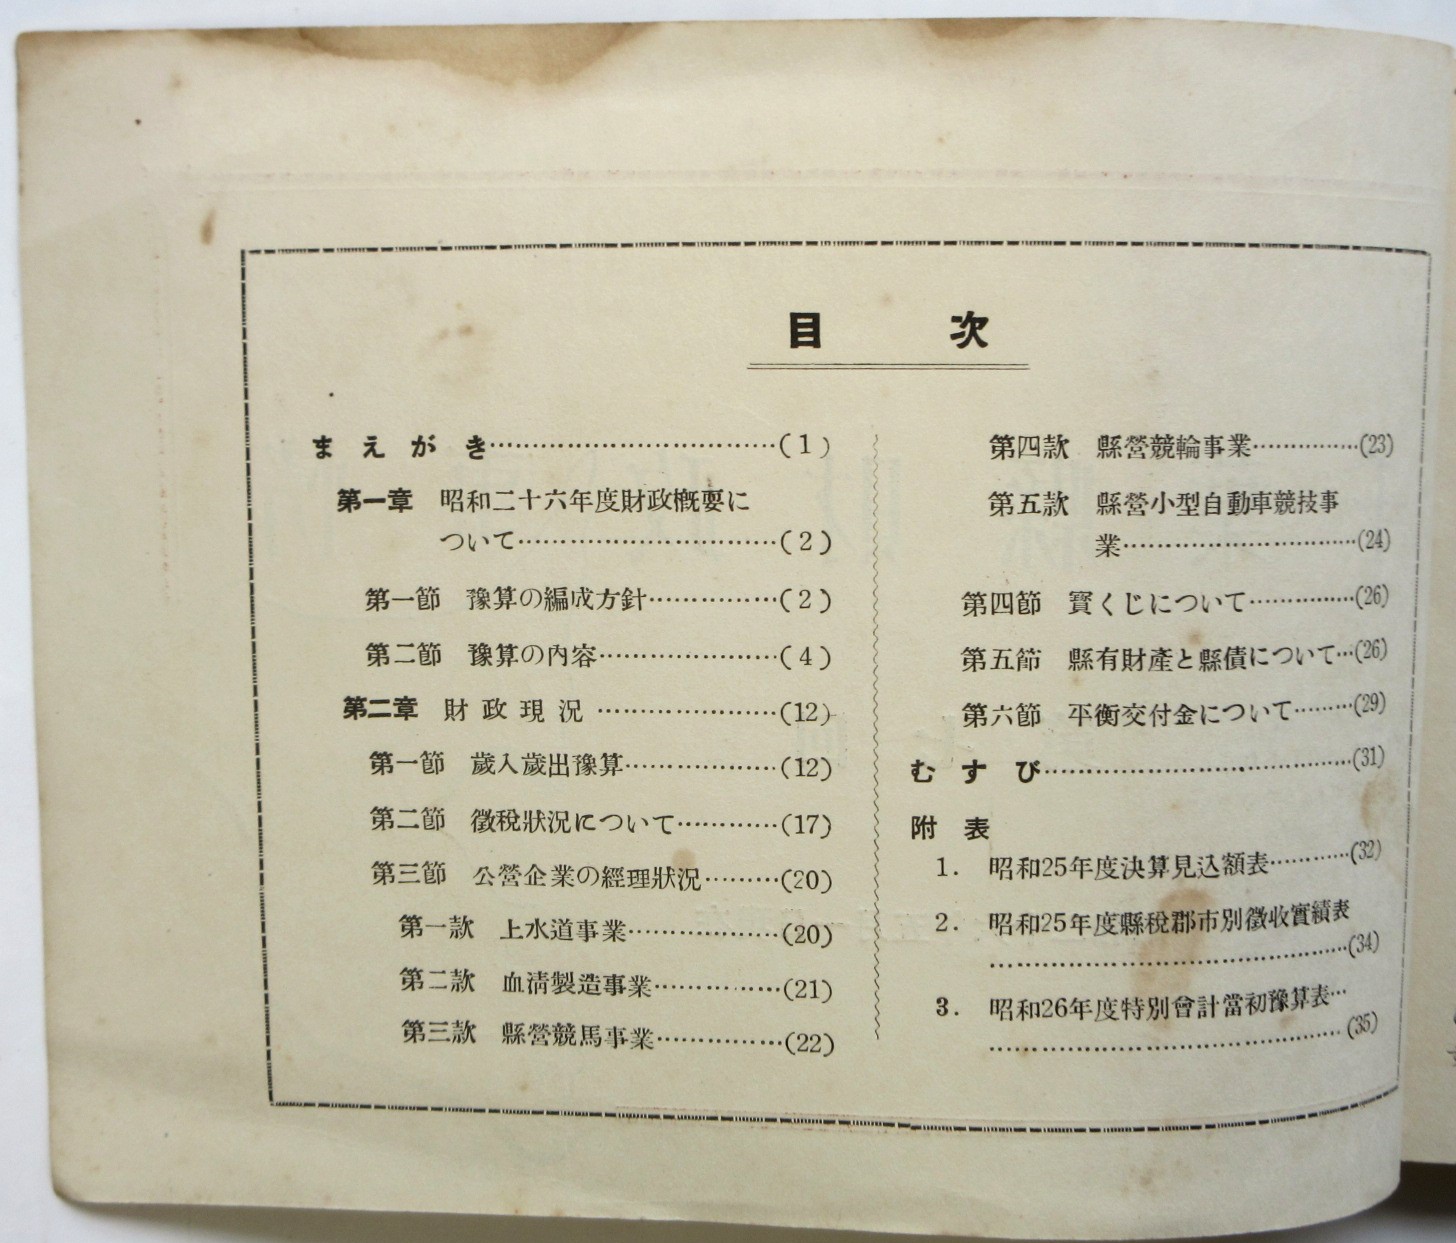 目　次
まえがき…………………………(1)
第一章　昭和二十六年度財政概要に
ついて…………………………(2)
第一節　豫算の編成方針……………(2)
第二節　豫算の內容…………………(4)
第二章　財政現況 …………………(12)
第一節　歲入歲出豫算………………(12)
第二節　徵稅狀況について…………(17)
第三節　公營企業の經理狀況………(20)
第一款　上水道事業…………………(20)
第二款　血淸製造事業………………(21)
第三款　縣營競馬事業………………(22)
第四款　縣營競輪事業……………(23)
第五款　縣營小型自動車競技事
業…………………………(24)
第四節　寳くじについて……………(26)
第五節　縣有財產と縣債について…(26)
第六節　平衡交付金について………(29)
むすび…………………………………(31)
附表
1.　昭和25年度決算見込額表…………(32)
2.　昭和25年度縣稅郡市別徵收實績表
……………………………………(34)
3.　昭和26年度特別會計當初豫算表…
……………………………………(35)